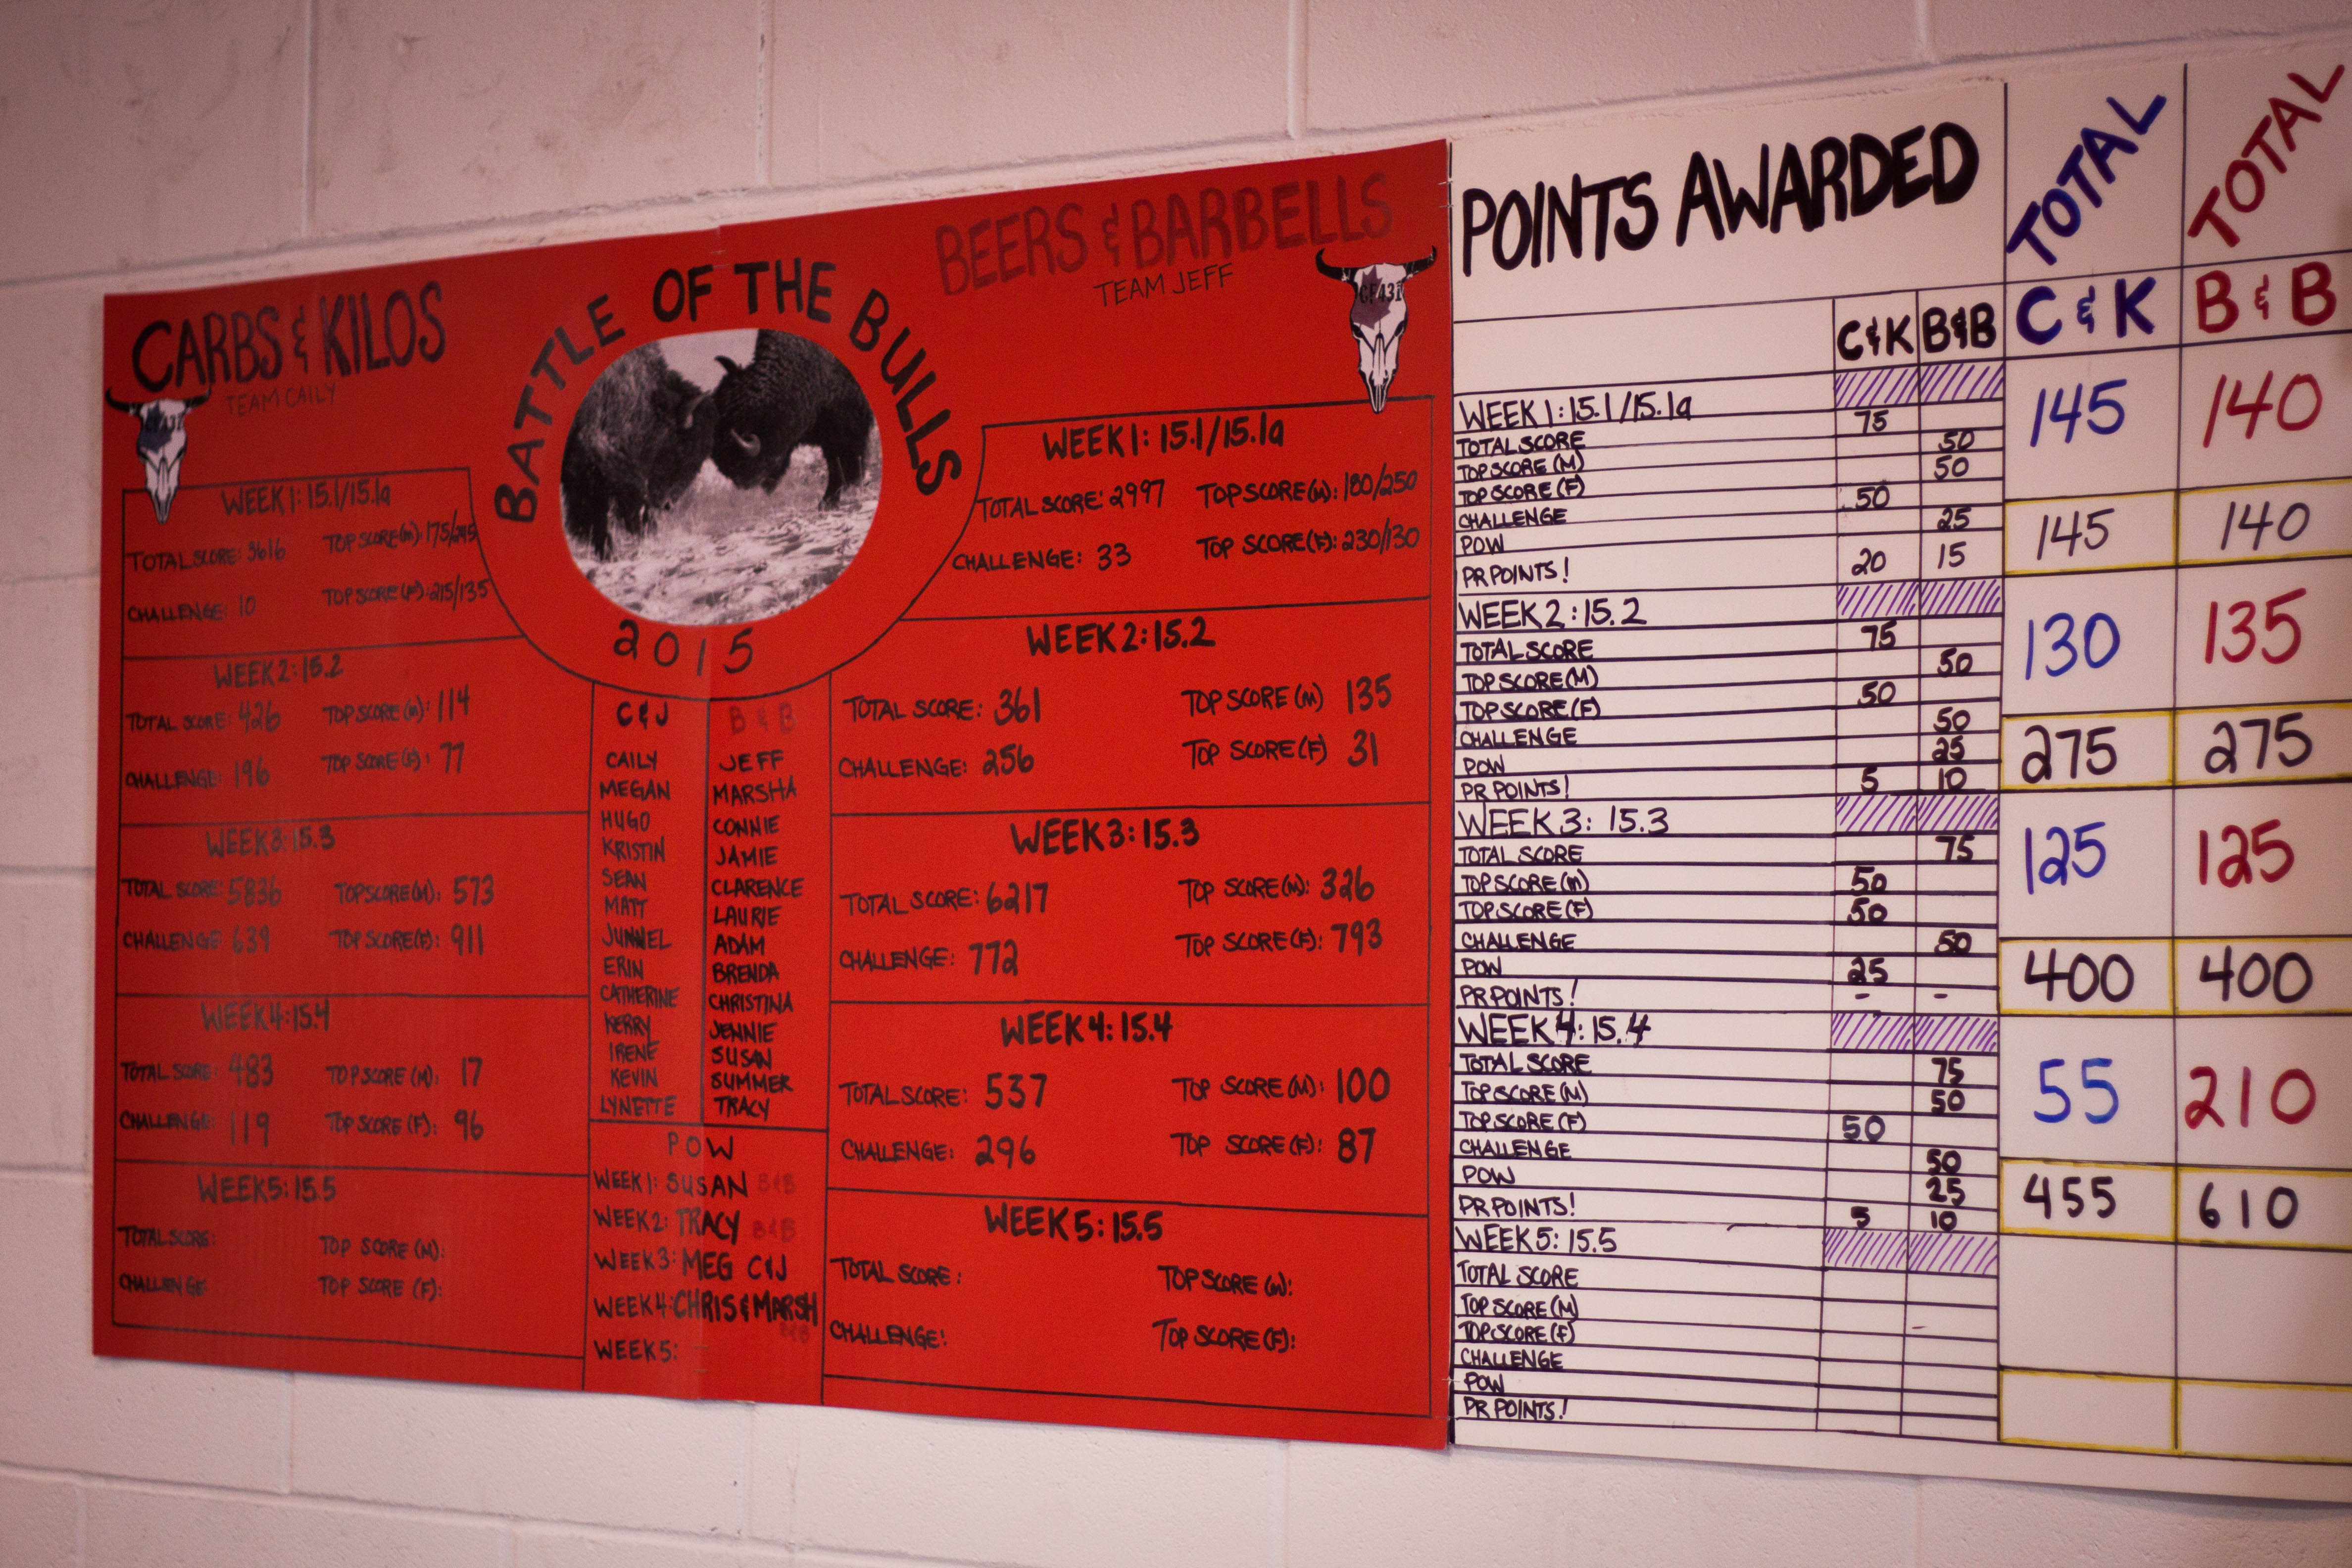 CARBS & KILOS
TEAM CAILY
BATTLE OF THE BULLS
2015
BEERS & BARBELLS
TEAM JEFF
CF431
WEEK 1: 15.1/15.1a
TOTAL SCORE: 3616 TOP SCORE(M): 175/245
CHALLENGE: 10 TOP SCORE(F): 215/135
WEEK 2: 15.2
TOTAL SCORE: 426 TOP SCORE(M): 114
CHALLENGE: 196 TOP SCORE(F): 77
WEEK 3: 15.3
TOTAL SCORE: 5836 TOP SCORE(M): 573
CHALLENGE: 639 TOP SCORE(F): 911
WEEK 4: 15.4
TOTAL SCORE: 483 TOP SCORE(M): 17
CHALLENGE: 119 TOP SCORE(F): 96
WEEK 5: 15.5
TOTAL SCORE: TOP SCORE(M):
CHALLENGE: TOP SCORE(F):
C & J B & B
CAILY JEFF
MEGAN MARSHA
HUGO CONNIE
KRISTIN JAMIE
SEAN CLARENCE
MATT LAURIE
ADAM
ERIN BRENDA
CATHERINE CHRISTINA
KERRY JENNIE
IRENE SUSAN
KEVIN SUMMER
LYNETTE TRACY
POW
WEEK 1: SUSAN B&B
WEEK 2: TRACY B&B
WEEK 3: MEG C&J
WEEK 4: CHRIS & MARSH B&B
WEEK 5:
WEEK 1: 15.1/15.1a
TOTAL SCORE: 2997 TOP SCORE(M): 180/250
CHALLENGE: 33 TOP SCORE(F): 230/130
WEEK 2: 15.2
TOTAL SCORE: 361 TOP SCORE(M) 135
CHALLENGE: 256 TOP SCORE(F) 31
WEEK 3: 15.3
TOTAL SCORE: 6217 TOP SCORE(M): 326
CHALLENGE: 772 TOP SCORE(F): 793
WEEK 4: 15.4
TOTAL SCORE: 537 TOP SCORE(M): 100
CHALLENGE: 296 TOP SCORE(F): 87
WEEK 5: 15.5
TOTAL SCORE: TOP SCORE(M):
CHALLENGE: TOP SCORE(F):
POINTS AWARDED
C&K B&B
WEEK 1: 15.1/15.1a
TOTAL SCORE 75
TOP SCORE (M) 50
TOP SCORE (F) 50
CHALLENGE 50
POW 25
PR POINTS! 20 15
WEEK 2: 15.2
TOTAL SCORE 75
TOP SCORE(M) 50
TOP SCORE(F) 50
CHALLENGE 50
POW 25
PR POINTS! 5 10
WEEK 3: 15.3
TOTAL SCORE 75
TOP SCORE(M) 50
TOP SCORE(F) 50
CHALLENGE 50
POW 25
PR POINTS! - -
WEEK 4: 15.4
TOTAL SCORE 75
TOP SCORE(M) 50
TOP SCORE(F) 50
CHALLENGE 50
POW 25
PR POINTS! 5 10
WEEK 5: 15.5
TOTAL SCORE
TOP SCORE(M)
TOP SCORE(F)
CHALLENGE
POW
PR POINTS!
TOTAL TOTAL
C & K B & B
145 140
145 140
130 135
275 275
125 125
400 400
55 210
455 610